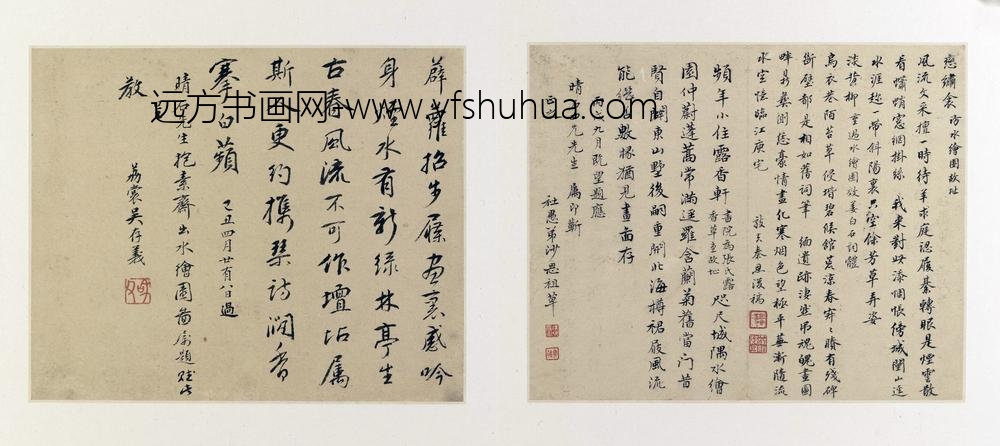 戀繡衾 訪水繪園故址
風流文采擅一時待羊求庭認履綦轉眼是煙雲散
看蠨蛸窓網掛絲 我來對此添惆悵傍城闉山遶
水涯趂一帶斜陽裏只空餘芳草弄姿
淡黃柳 重過水繪園效姜白石詞體
烏衣巷陌苔草侵堦碧館荒涼春寂寂賸有殘碑
斷壁都是相如舊詞筆 緬遺跡淒然弔魂魄畫圖
畔鼎彝測恁豪情盡化寒烟色望極平蕪漸隨流
水空憶臨江庾宅
敦夫秦恩復稿
頻年小住露香軒 書院為張氏露香草堂故址 咫尺城隅水繪
園仲蔚蓬蒿常滿逕羅含蘭菊舊當門昔
賢自闢東山墅後嗣重開北海樽裙屐風流
能繼否數椽猶見畫面存
九月既望題應
晴先生 屬即
社愚弟沙思祖草
薜蘿招步屧畫裏感吟
身水有新綠林亭生
古春風流不可作壇坫屬
斯更約攜琴詩澗香
搴白蘋
乙丑四月廿有八日過
晴先生抱素齋出水繪園圖屬題賦此
教
荔裳吳存義
远方书画网-www.yfshuhua.com